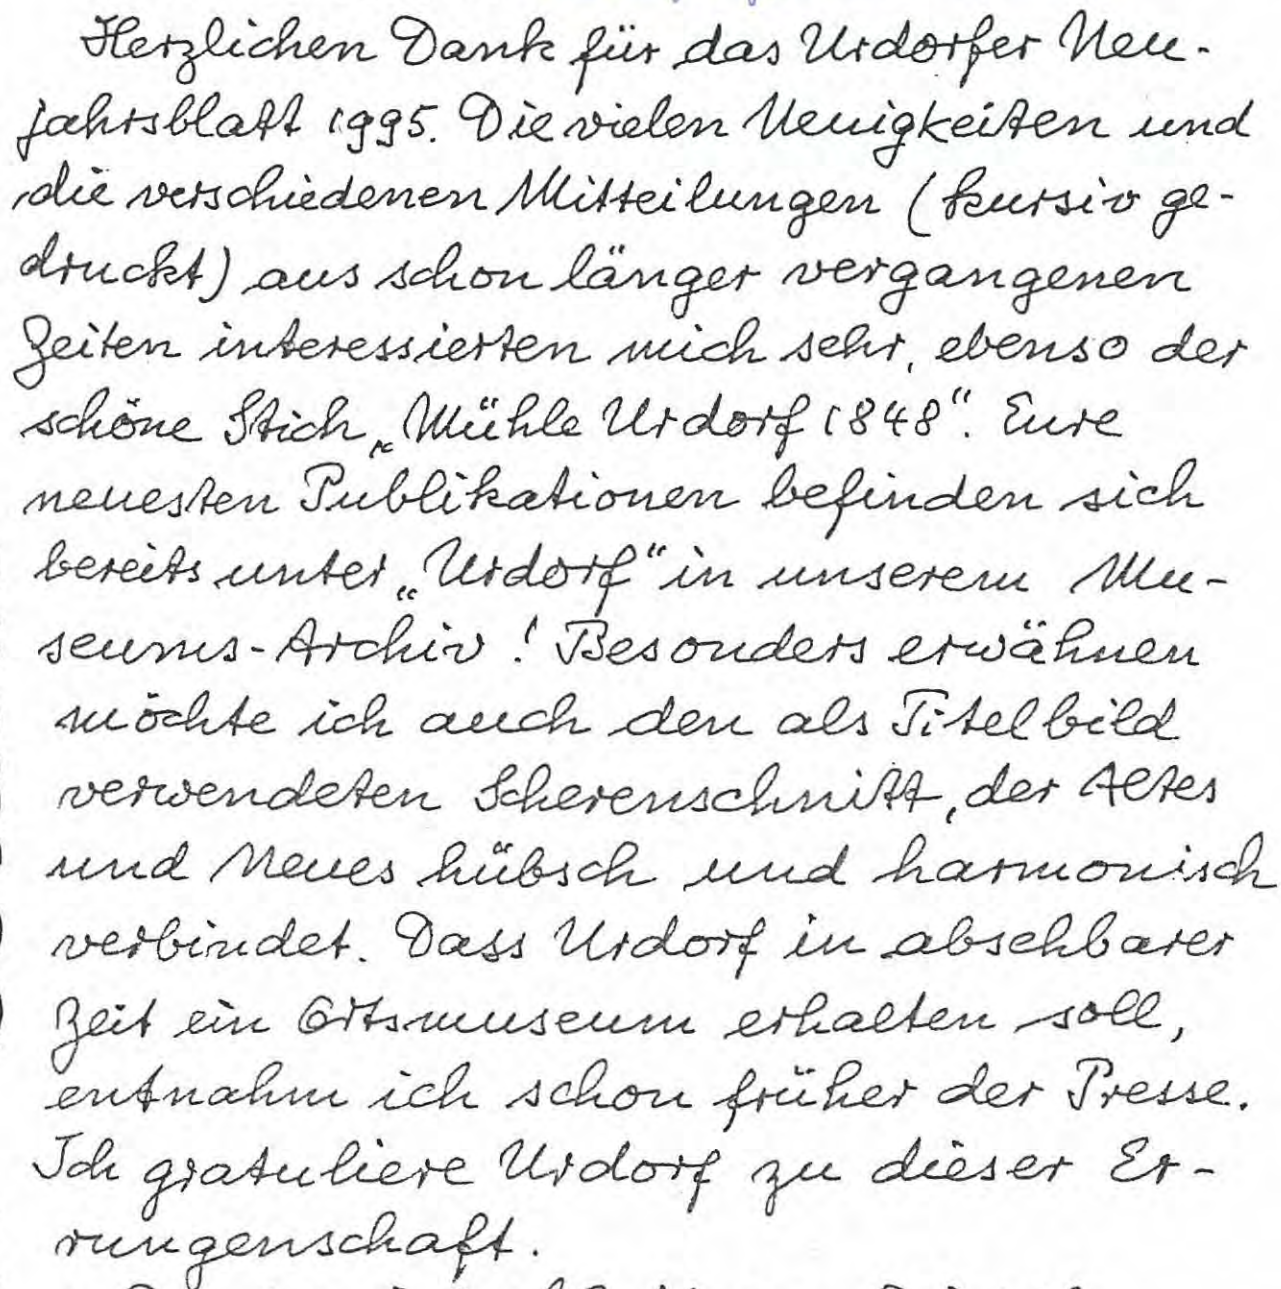 Herzlichen Dank für das Urdorfer Neu-
jahrsblatt 1995. Die vielen Neuigkeiten und
die verschiedenen Mitteilungen (kursiv ge-
druckt) aus schon länger vergangenen
Zeiten interessierten mich sehr, ebenso der
schöne Stich „Mühle Urdorf 1848“. Eure
neuesten Publikationen befinden sich
bereits unter „Urdorf“ in unserem Mu-
seums-Archiv! Besonders erwähnen
möchte ich auch den als Titelbild
verwendeten Scherenschnitt, der Altes
und Neues hübsch und harmonisch
verbindet. Dass Urdorf in absehbarer
Zeit ein Ortsmuseum erhalten soll,
entnahm ich schon früher der Presse.
Ich gratuliere Urdorf zu dieser Er-
rungenschaft.